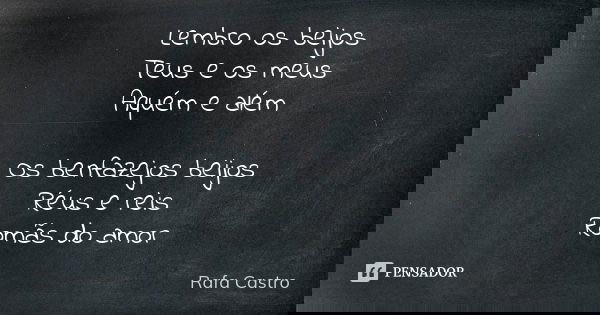 Lembro os beijos
Teus e os meus
Aquém e além
os benfazejos beijos
Réus e reis
Romãs do amor
Rafa Castro
PENSADOR